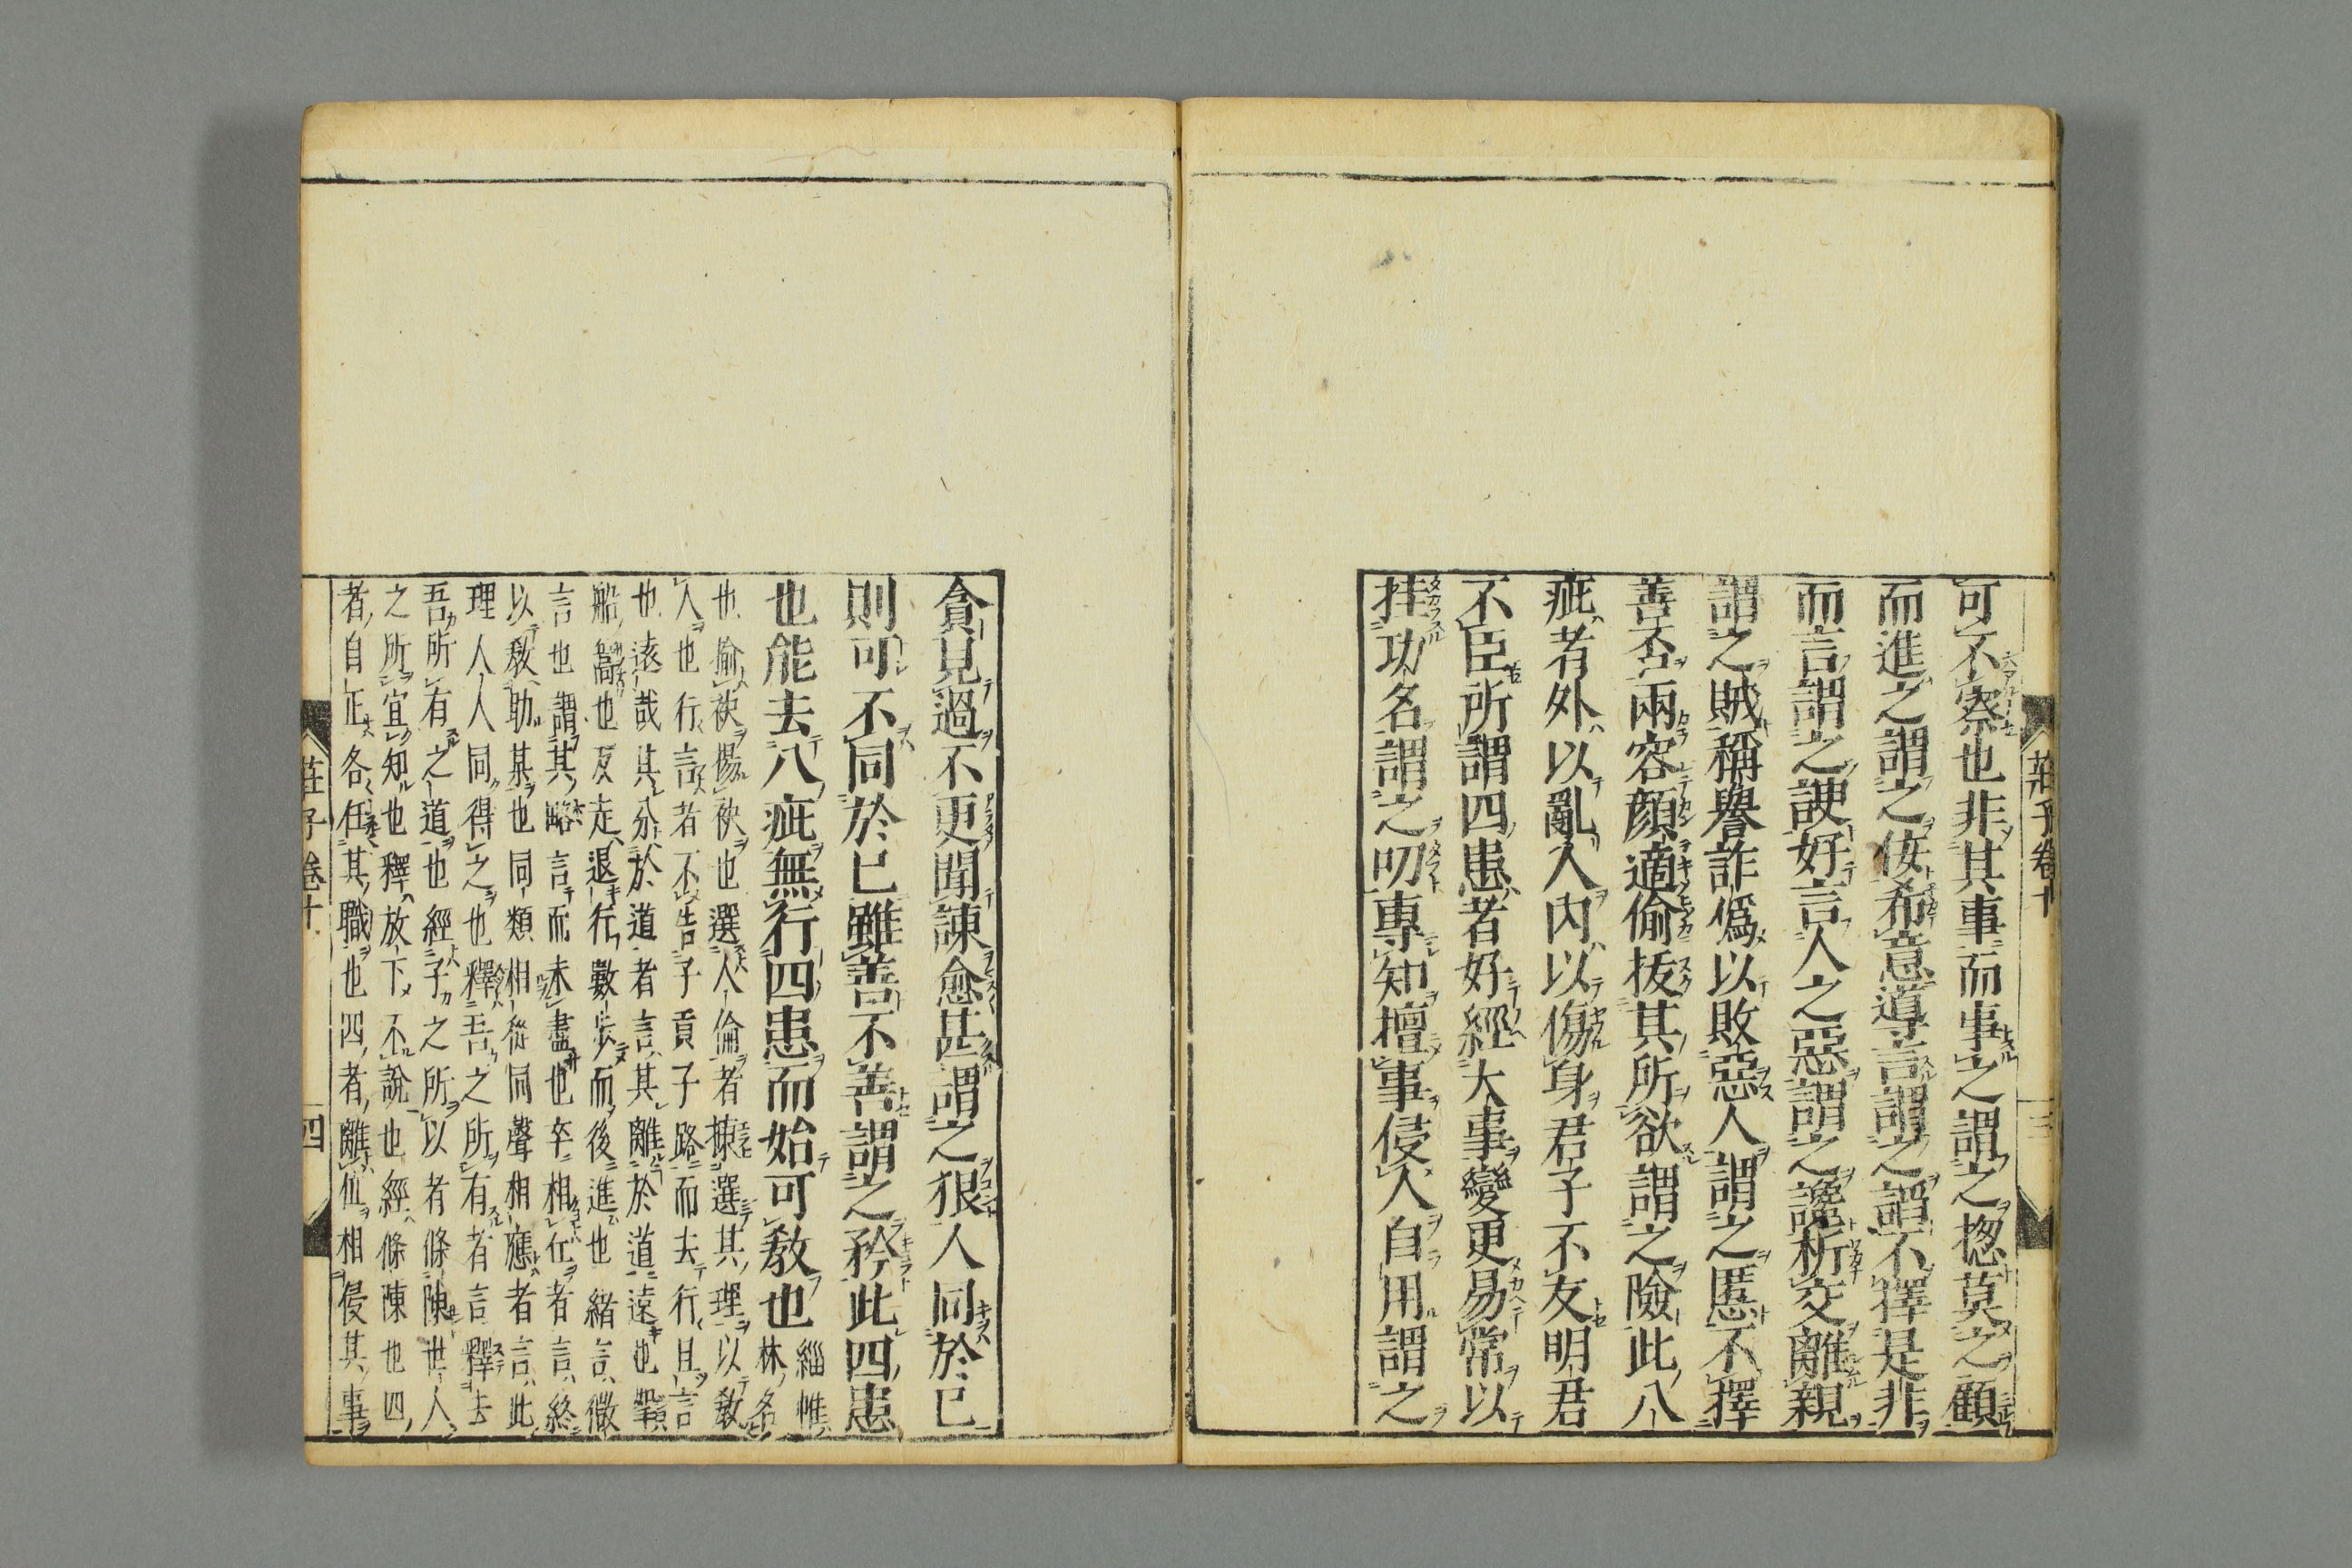 莊子卷十
三
可不察也非其事而事之謂之摠莫之顧
而進之謂之佞希意導言謂之謟不擇是非
而言謂之諛好言人之惡謂之讒析交離親
謂之賊稱譽詐僞以敗惡人謂之慝不擇
善否兩容顏適偷拔其所欲謂之險此八
疵者外以亂人内以傷身君子不友明君
不臣所謂四患者好經大事變更易常以
挂功名謂之叨專知擅事侵人自用謂之
貪見過不更聞諫愈甚謂之狠人同於已
則可不同於已雖善不善謂之矜此四患
也能去八疵無行四患而始可敎也
緇惟
林名
也揄袂揚袂也選人倫者揀選其理以敎
人也行言者不告子貢子路而去行且言
也遠哉其分於道者言其離於道遠也拏
船篙也反走退行數步而後進也緒言微
言也謂其略言而未盡也卒相丘者言終
以敎助某也同類相從同聲相應者言此
理人人同得之也釋吾之所有者言釋去
吾所有之道也經子之所以者條陳世人
之所宜知也釋放下不說也經條陳也四
者自正各任其職也四者離位相侵其事
莊子卷十
四